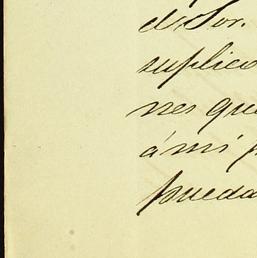 el Sor.
suplico
nes que
á mi p
pueda